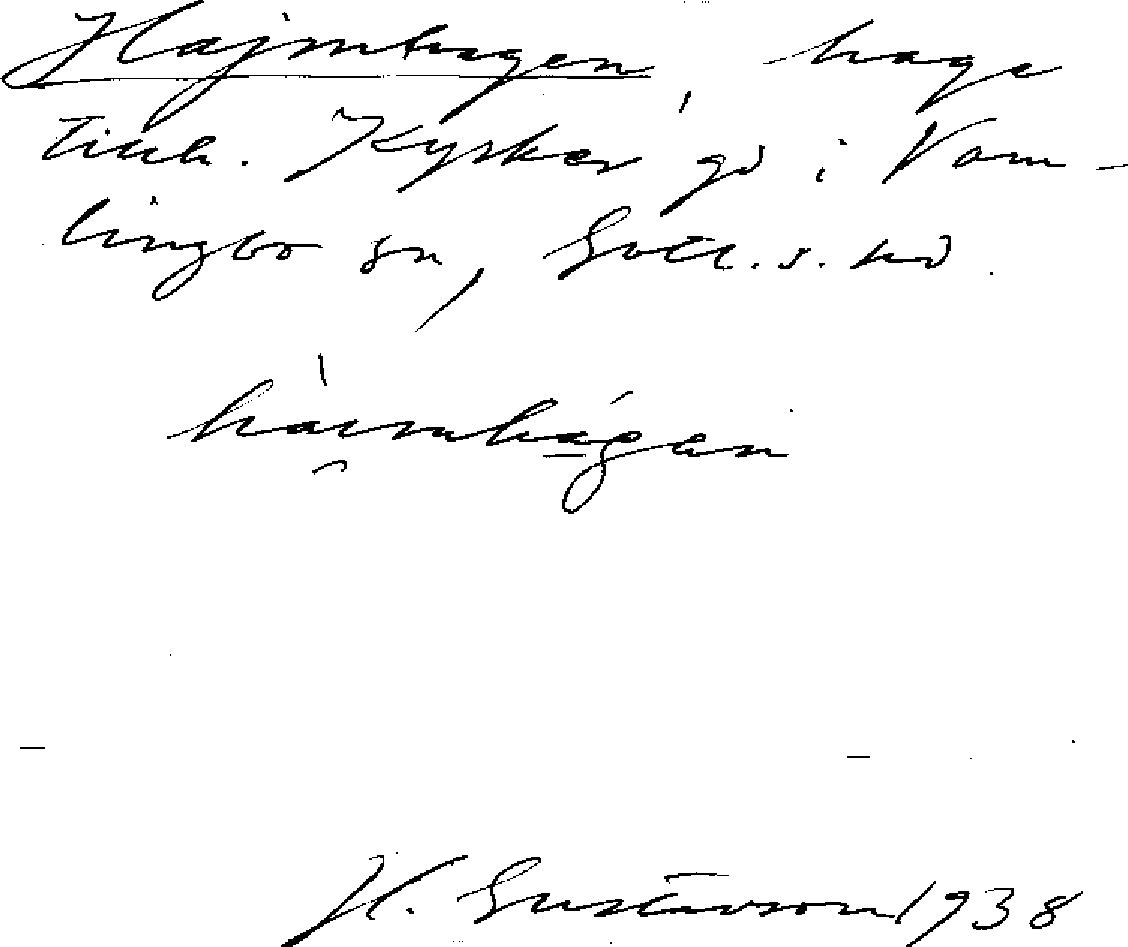 Hajmhagen, hage
tillh. Kyrkes gd i Vam-
lingbo sn, Gotl. s. hd.
háimhágen
H. Gustavson 1938